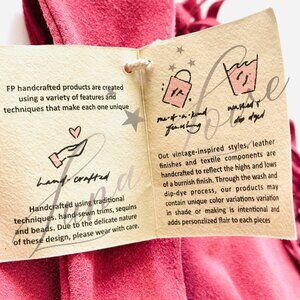 FP handcrafted products are created
using a variety of features and
techniques that make each one unique
hand crafted
Handcrafted using traditional
techniques, hand-sewn trims, sequins
and beads. Due to the delicate nature
of these design, please wear with care.
one-of-a-kind
finishing
washed &
dip dyed
Our vintage-inspired styles, leather
finishes and textile components are
handcrafted to reflect the highs and lows
of a burnish finish. Through the wash and
dip-dye process, our products may
contain unique color variations variation
in shade or making is intentional and
adds personzlized flair to each pieces